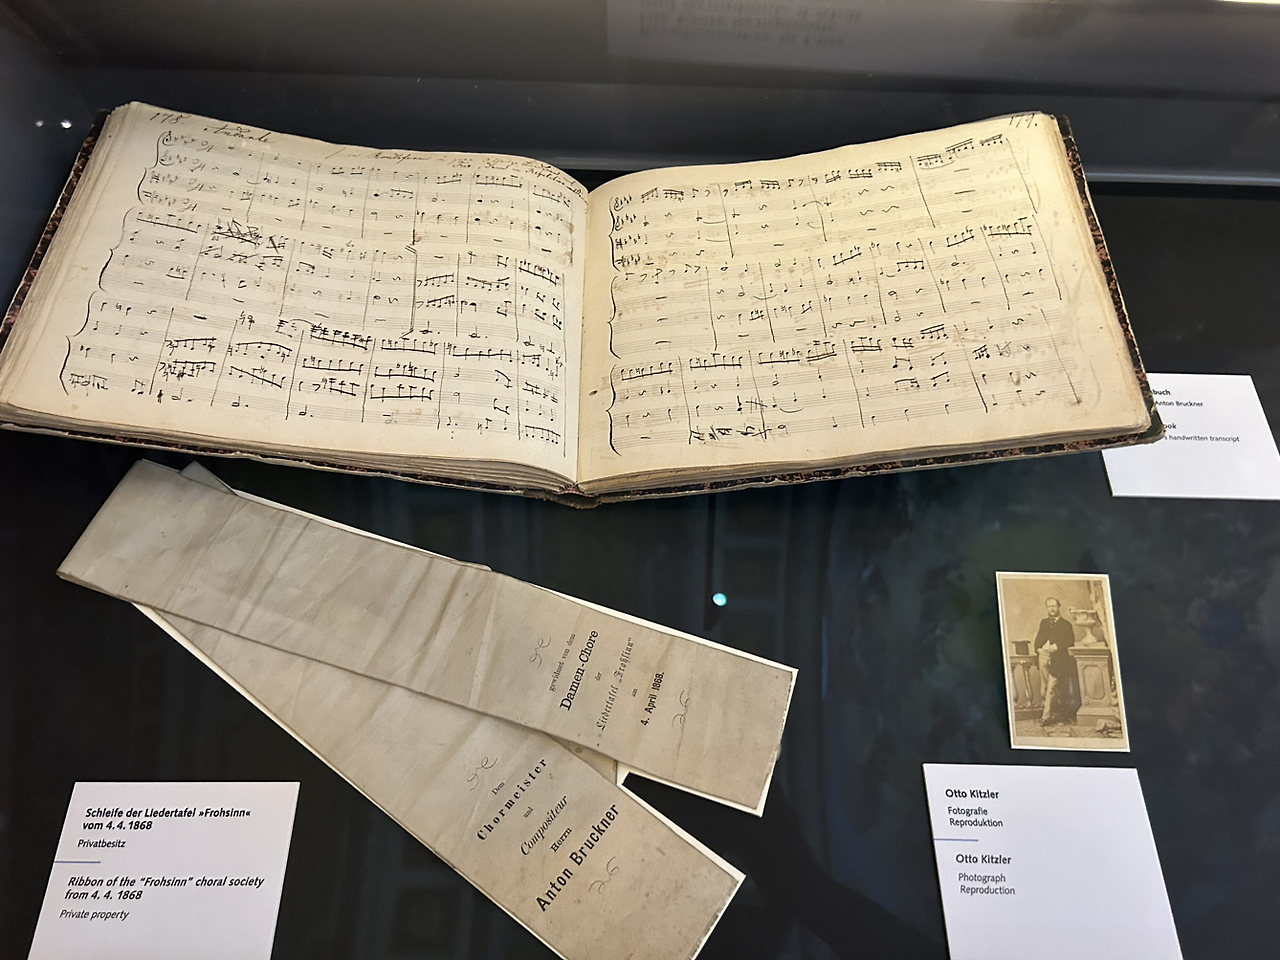 178.
Andante
179.
buch
Anton Bruckner
ook
s handwritten transcript
gewidmet von dem
Damen-Chore
der
Liedertafel „Frohsinn“
am
4. April 1868.
Dem
Chormeister
und
Compositeur
Herrn
Anton Bruckner
Schleife der Liedertafel »Frohsinn«
vom 4. 4. 1868
Privatbesitz
Ribbon of the “Frohsinn” choral society
from 4. 4. 1868
Private property
Otto Kitzler
Fotografie
Reproduktion
Otto Kitzler
Photograph
Reproduction